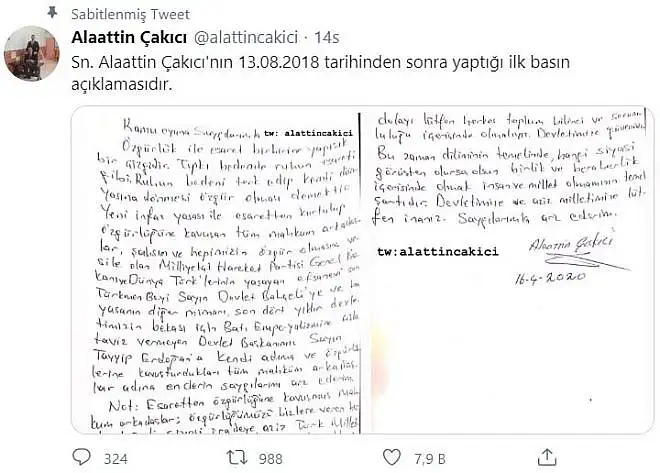 Sabitlenmiş Tweet
Alaattin Çakıcı @alattincakici · 14s
Sn. Alaattin Çakıcı'nın 13.08.2018 tarihinden sonra yaptığı ilk basın
açıklamasıdır.
Kamu oyuna Saygılarımla tw: alattincakici
Özgürlük ile esaret birbirine yapışık
bir çizgidir. Tıpkı bedende ruhun esareti
gibi. Ruhun bedeni terk edip kendi dün-
yasına dönmesi özgür olması demektir
Yeni infaz yasası ile esaretten kurtulup
özgürlüğüne kavuşan tüm mahkum arkadaş-
lar, şahsım ve hepimizin özgür olmasına ve-
sile olan Milliyetçi Hareket Partisi Genel Baş-
kanı ve Dünya Türk'lerinin yaşayan efsanevi
Türkmen Beyi Sayın Devlet Bahçeli'ye ve bu
yasanın diğer mimarı, son dört yıldır devle-
timizin bekası için Batı Emperyalizmine asla
taviz vermeyen Devlet Başkanımız Sayın
Tayyip Erdoğan'a kendi adıma ve özgürlük-
lerine kavuşturdukları tüm mahkum arkadaş-
lar adına en derin saygılarımı arz ederim.
Not: Esaretten özgürlüğüne kavuşmuş mah-
kum arkadaşlar; özgürlüğümüzü bizlere veren
iradeye, aziz Türk Millet
dolayı lütfen herkes toplum bilinci ve sorum-
luluğu içerisinde olmalıyız. Devletimize güvenelim
Bu zaman diliminin temelinde, hangi siyasi
görüşten olursa olsun birlik ve beraberlik
içerisinde olmak insan ve millet olmamızın temel
şartıdır. Devletimize ve aziz milletimize lüt-
fen inanız. Saygılarımla arz ederim.
tw:alattincakici
Alaattin Çakıcı
16-4-2020
324 988 7,9 B